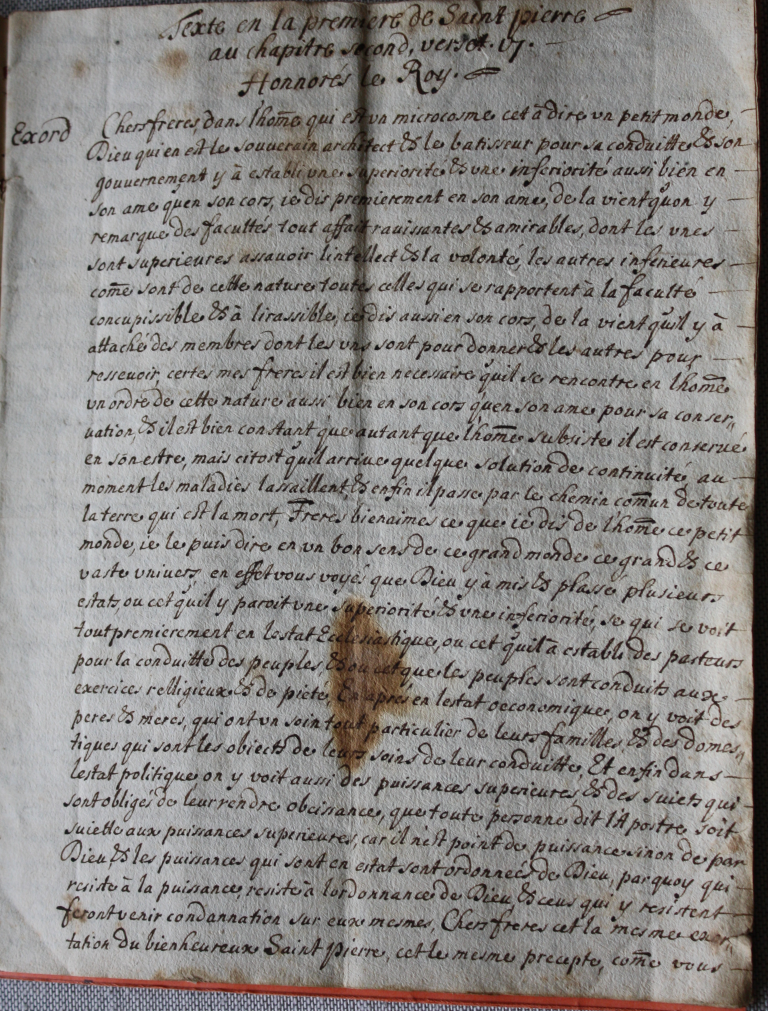 Texte en la premiere de Saint pierre
au chapitre second, verset. 17.
Honnorés le Roy.
Exord
Chers freres dans lhom̃e qui est vn microcosme cet à dire vn petit monde,
Dieu qui en est le souuerain architect & le batisseur pour sa conduitte & son
gouuernement y à establi vne superiorité & vne inferiorité aussi bien en
son ame qu'en son cors, ie dis premierement en son ame, de la vient qu'on y
remarque des facultés tout affait rauissantes & amirables, dont les vnes
sont superieures assauoir lintellect & la volonté, les autres inferieures
com̃e sont de cette nature toutes celles qui se rapportent a la faculté
concupissible & à lirassible, ie dis aussi en son cors, de la vient qu'il y à
attaché des membres dont les vns sont pour donner & les autres pour
resseuoir, certes mes freres il est bien necessaire qu'il se rencontre en lhom̃e
vn ordre de cette nature aussi bien en son cors qu'en son ame pour sa conser„
uation, & il est bien constant que autant que lhom̃e subsiste il est conserué
en son estre, mais citost qu'il arriue quelque solution de continuité, au
moment les maladies lassaillent, & enfin il passe par le chemin com̃un de toute
la terre qui est la mort, Freres bienaimes ce que ie dis de lhom̃e ce petit
monde, ie le puis dire en vn bon sens de ce grand monde ce grand & ce
vaste vniuers, en effet vous voyés que Dieu y à mis & plassé plusieurs
estats ou cet qu'il y paroit vne superiorité & vne inferiorité, se qui se voit
tout premierement en lestat Ecclesiastique, ou cet qu'il à establi des pasteurs
pour la conduitte des peuples & ou cet que les peuples sont conduits aux
exercices relligieux & de pieté, En aprés en lestat oeconomique, on y voit des
peres & meres, qui ont vn soin tout particulier de leurs familles & des domes„
tiques qui sont les obiects de leurs soins de leur conduitte, Et enfin dans
lestat politique on y voit aussi des puissances superieures & des suiets qui
sont obligés de leur rendre obeissance, que toute personne dit lApostre soit
suiette aux puissances superieures, car il n'est point de puissance sinon de par
Dieu & les puissances qui sont en estat sont ordonneés de Dieu, parquoy qui
resiste à la puissance, resiste à lordonnance de Dieu, & ceus qui y resistent
feront venir condannation sur eux mesmes, Chers freres cet la mesme exor„
tation du bienheureux Saint pierre, cet le mesme precepte, com̃e vous